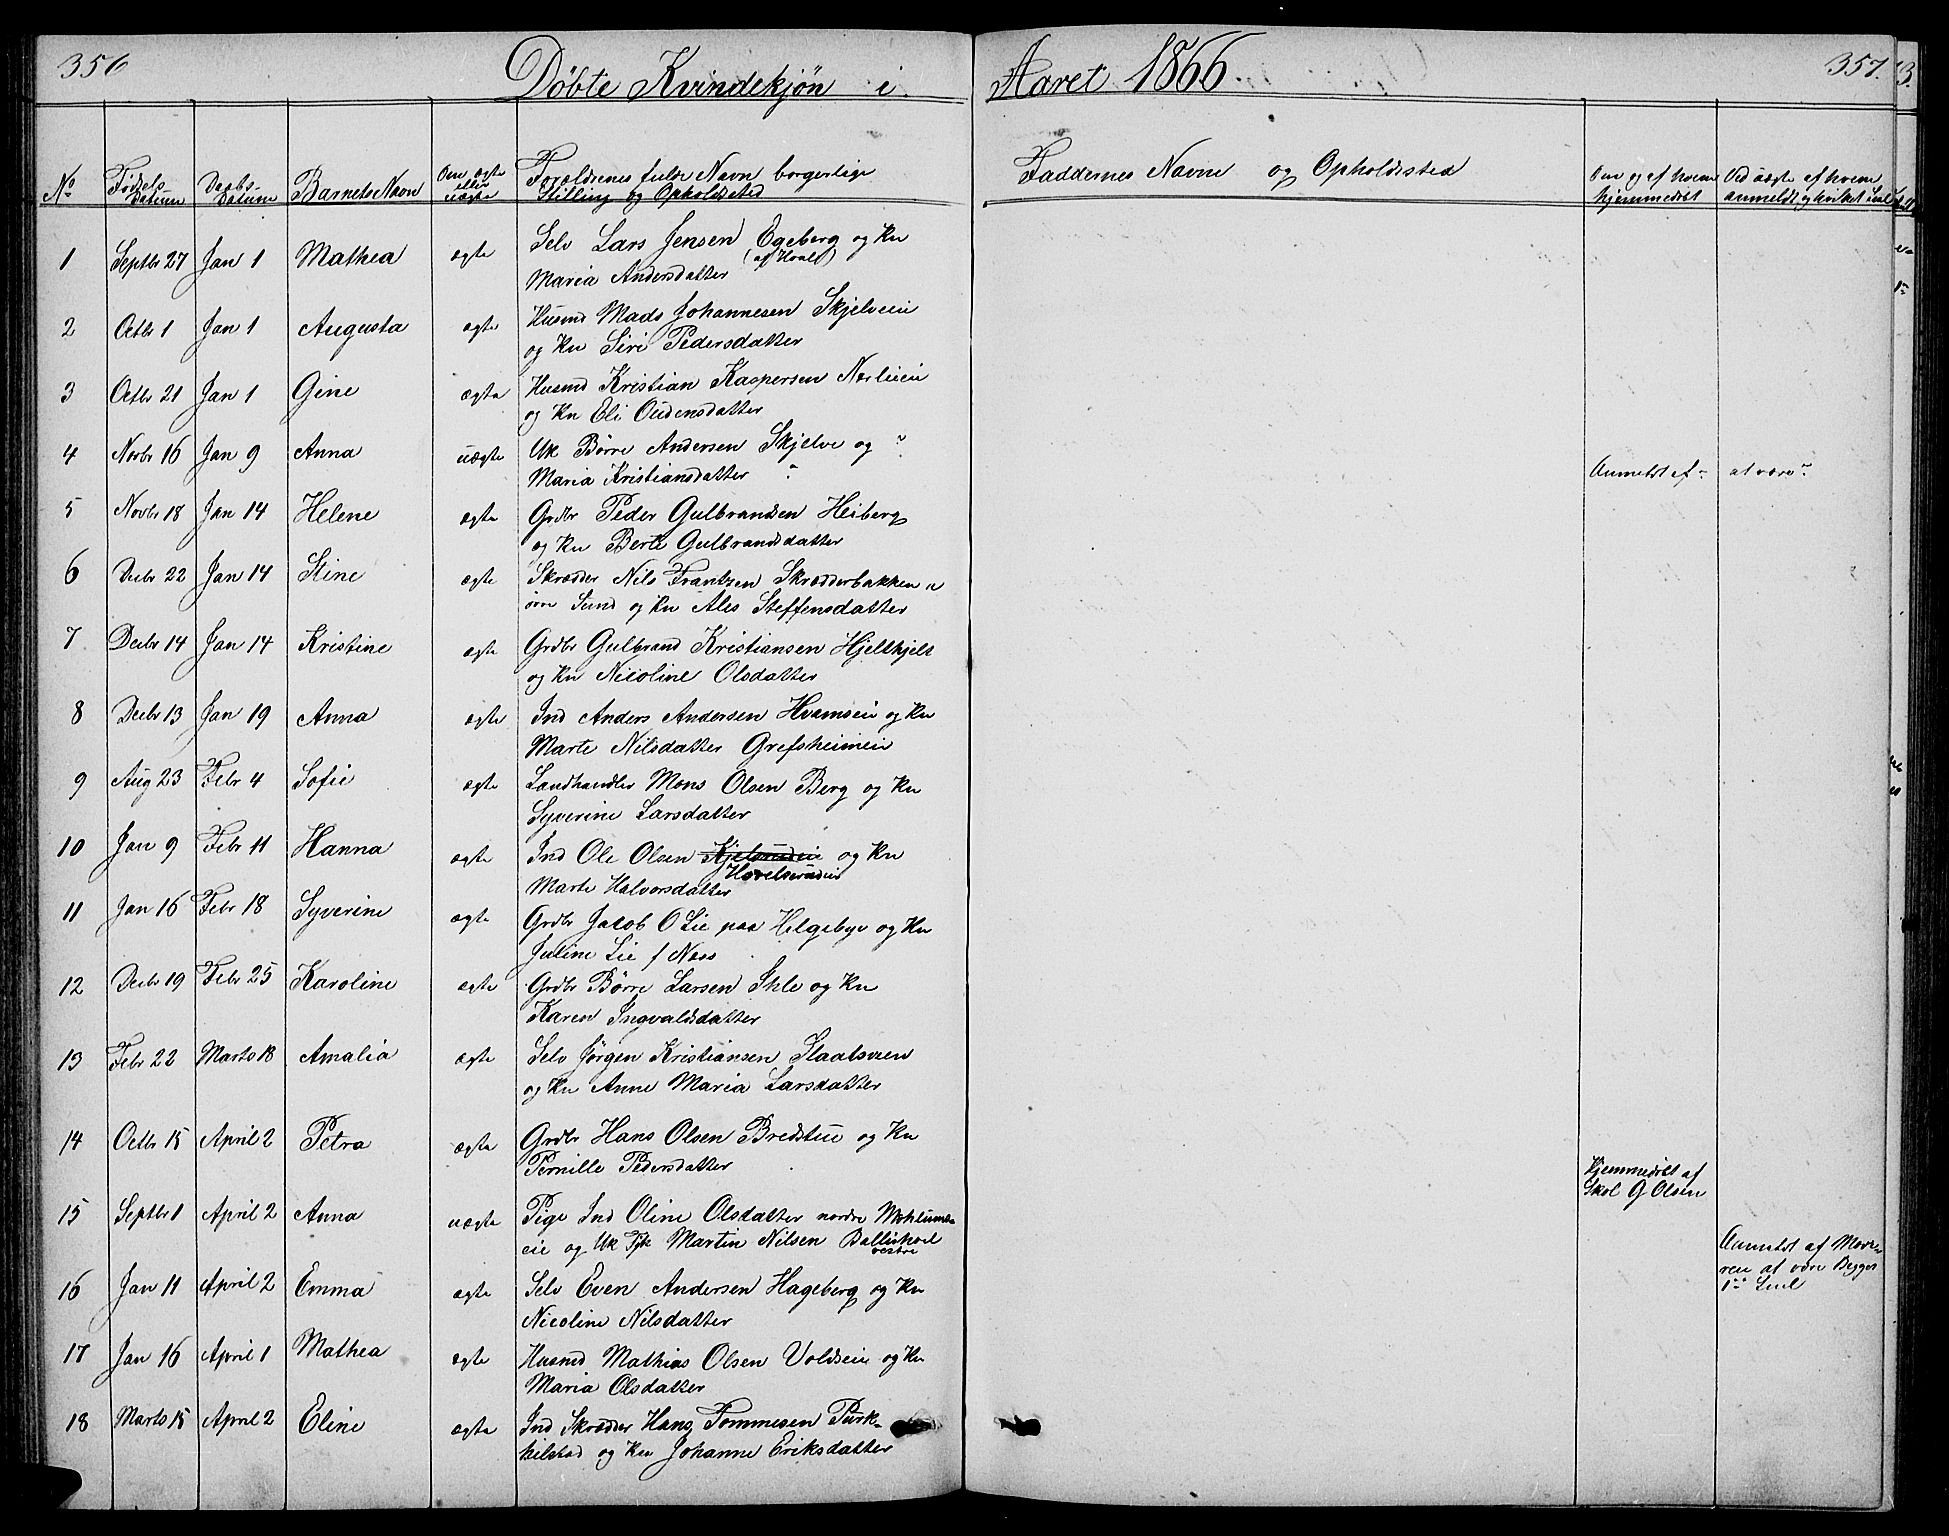 356
Døbte Kvindekjøn i Aaret 1866.
357.
No Fødsels Datum Daabs-Datum Barnets Navn Om ægte eller uægte Forældrenes fulde Navn borgerlige Stilling og Opholdsted Faddernes Navne og Opholdssted Om og af hvem hjemmedøbt Ved uægte af hvem anmeldt og hvilket Leie
1 Septbr 27 Jan 1 Mathea ægte Selv Lars Jensen Egeberg og Kn
(af Hval)
Maria Andersdatter
2 Octbr 1 Jan 1 Augusta ægte Husmd Mads Johannesen Skjelveeie
og Kn Siri Pedersdatter
3 Octbr 21 Jan 1 Gine ægte Husmd Kristian Kaspersen Norlieeie
og Kn Eli Oudensdatter
4 Novbr 16 Jan 9 Anna uægte Uk Børre Andersen Skjelve og ~
Maria Kristiansdatter ~
Anmeldt af ~ at være ~
5 Novbr 18 Jan 14 Helene ægte Grdbr Peder Gulbrandsen Heiberg
og Kn Berte Gulbrandsdatter
6 Decbr 22 Jan 14 Stine ægte Skrædder Nils Frantzen Skrædderbakken u
øvre Sund og Kn Ales Steffensdatter
7 Decbr 14 Jan 14 Kristine ægte Grdbr Gulbrand Kristiansen Hjelthjelt
og Kn Nicoline Olsdatter
8 Decbr 13 Jan 19 Anna ægte Ind Anders Andersen Hvamseie og Kn
Marte Nilsdatter Grefsheimeie
9 Aug 23 Febr 4 Sofie ægte Landhandler Mons Olsen Berg og Kn
Syverine Larsdatter
10 Jan 9 Febr 11 Hanna ægte Ind Ole Olsen Kjelsrudeie og Kn
Hovelsrudeie
Marte Halvorsdatter
11 Jan 16 Febr 18 Syverine ægte Grdbr Jacob O Lie paa Helgebye og Kn
Juline Lie f Næss
12 Decbr 19 Febr 25 Karoline ægte Grdbr Børre Larsen Ihle og Kn
Karen Ingvaldsdatter
13 Febr 22 Marts 18 Amalia ægte Selv Jørgen Kristiansen Slaatsveen
og Kn Anne Maria Larsdatter
14 Octbr 15 April 2 Petra ægte Grdbr Hans Olsen Bredstue og Kn
Pernille Pedersdatter
Hjemmedøbt af
Skol G Olsen
15 Septbr 1 April 2 Anna uægte Pige Ind Oline Olsdatter nordre Mohlums-
eie og Uk Tjk Martin Nilsen Ballishoel
vestre
Anmeldt af Mode-
ren at være Begges
1ste Leiel
16 Jan 11 April 2 Emma ægte Selv Even Andersen Hageberg og Kn
Nicoline Nilsdatter
17 Jan 16 April 1 Mathea ægte Husmd Mathias Olsen Voldseie og Kn
Maria Olsdatter
18 Marts 15 April 2 Eline ægte Ind Skrædder Hans Tommesen Purk-
hilstad og Kn Johanne Eriksdatter